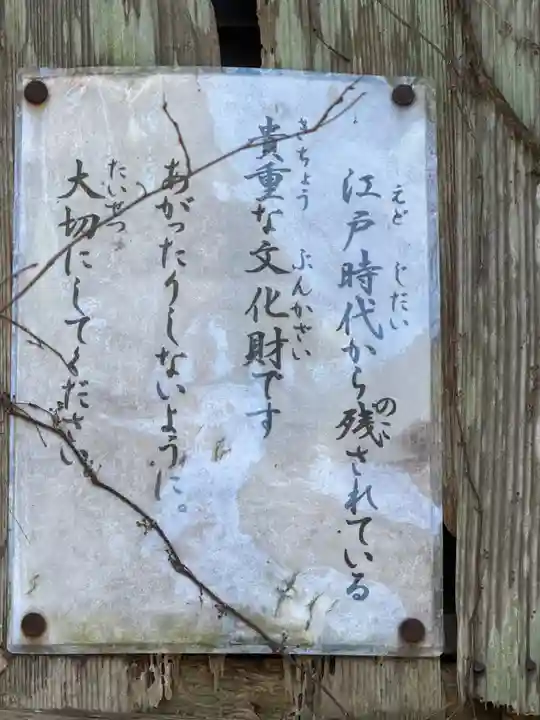 江戸時代から残されている
貴重な文化財です
あがったりしないように。
大切にしてください